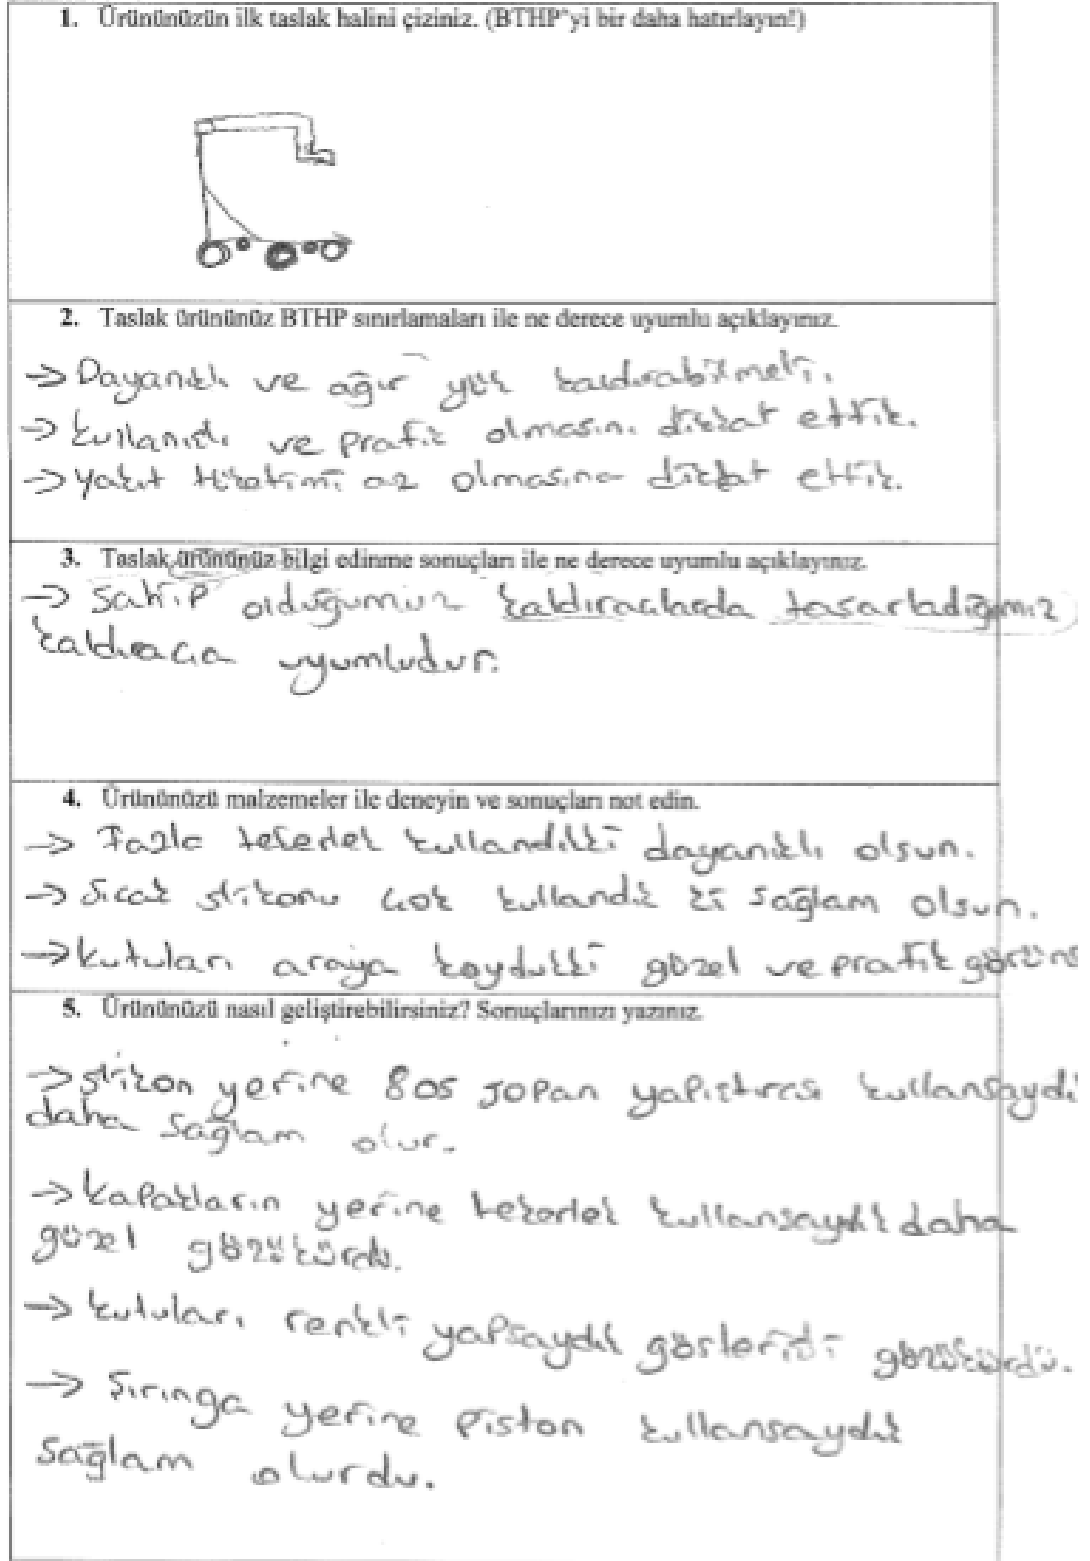 1. Ürününüzün ilk taslak halini çiziniz. (BTHP'yi bir daha hatırlayın!)
2. Taslak ürününüz BTHP sınırlamaları ile ne derece uyumlu açıklayınız.
→ Dayanıklı ve ağır yük kaldırabilmeli.
→ kullanışlı ve prafik olmasını dikkat ettik.
→ yakıt tüketimi az olmasına dikkat ettik.
3. Taslak ürününüz bilgi edinme sonuçları ile ne derece uyumlu açıklayınız.
→ sahip olduğumuz kaldıraclarda tasarladığımız
kaldıraca uyumludur.
4. Ürününüzü malzemeler ile deneyin ve sonuçları not edin.
→ Fazla tekerlek kullandıkki dayanıklı olsun.
→ Sıcak silikonu çok kullandık ki sağlam olsun.
→ kutuları araya koydukki güzel ve prafik
5. Ürününüzü nasıl geliştirebilirsiniz? Sonuçlarınızı yazınız.
→ silikon yerine 805 Jopan yapıştırıcı kullansaydı
daha sağlam olur.
→ kapakların yerine tekerlek kullansaydık daha
güzel gözükürdü.
→ kutuları renkli yapsaydık gösterişli gözükürdü.
→ Şırınga yerine piston kullansaydık
sağlam olurdu.